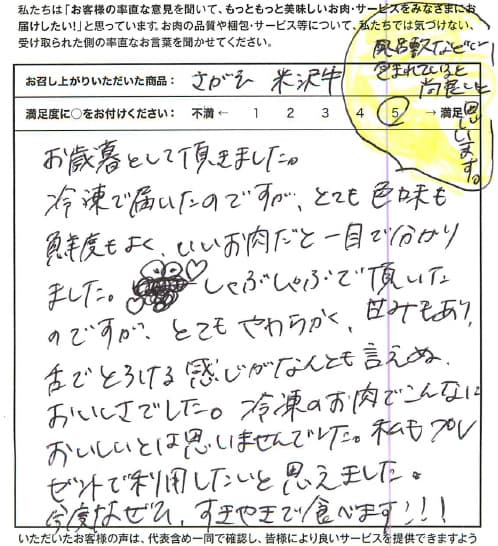 私たちは「お客様の率直な意見を聞いて、もっともっと美味しいお肉・サービスをみなさまにお
届けしたい！」と思っています。お肉の品質や梱包・サービス等について、私たちでは気づけない、
受け取られた側の率直なお言葉を聞かせてください。
風呂敷などに
包まれていると
尚良しと
思いします。
お召し上がりいただいた商品： さがえ 米沢牛
満足度に○をお付けください： 不満 ← 1 2 3 4 5 → 満足
お歳暮として頂きました。
冷凍で届いたのですが、とても色味も
鮮度もよく、いいお肉だと一目で分かり
ました。しゃぶしゃぶで頂いた
のですが、とてもやわらかく、甘みもあり、
舌でとろける感じがなんとも言えぬ、
おいしさでした。冷凍のお肉でこんなに
おいしいとは思いませんでした。私もプレ
ゼントで利用したいと思えました。
今度はぜひ、すきやきで食べます!!!
いただいたお客様の声は、代表含め一同で確認し、皆様により良いサービスを提供できますよう